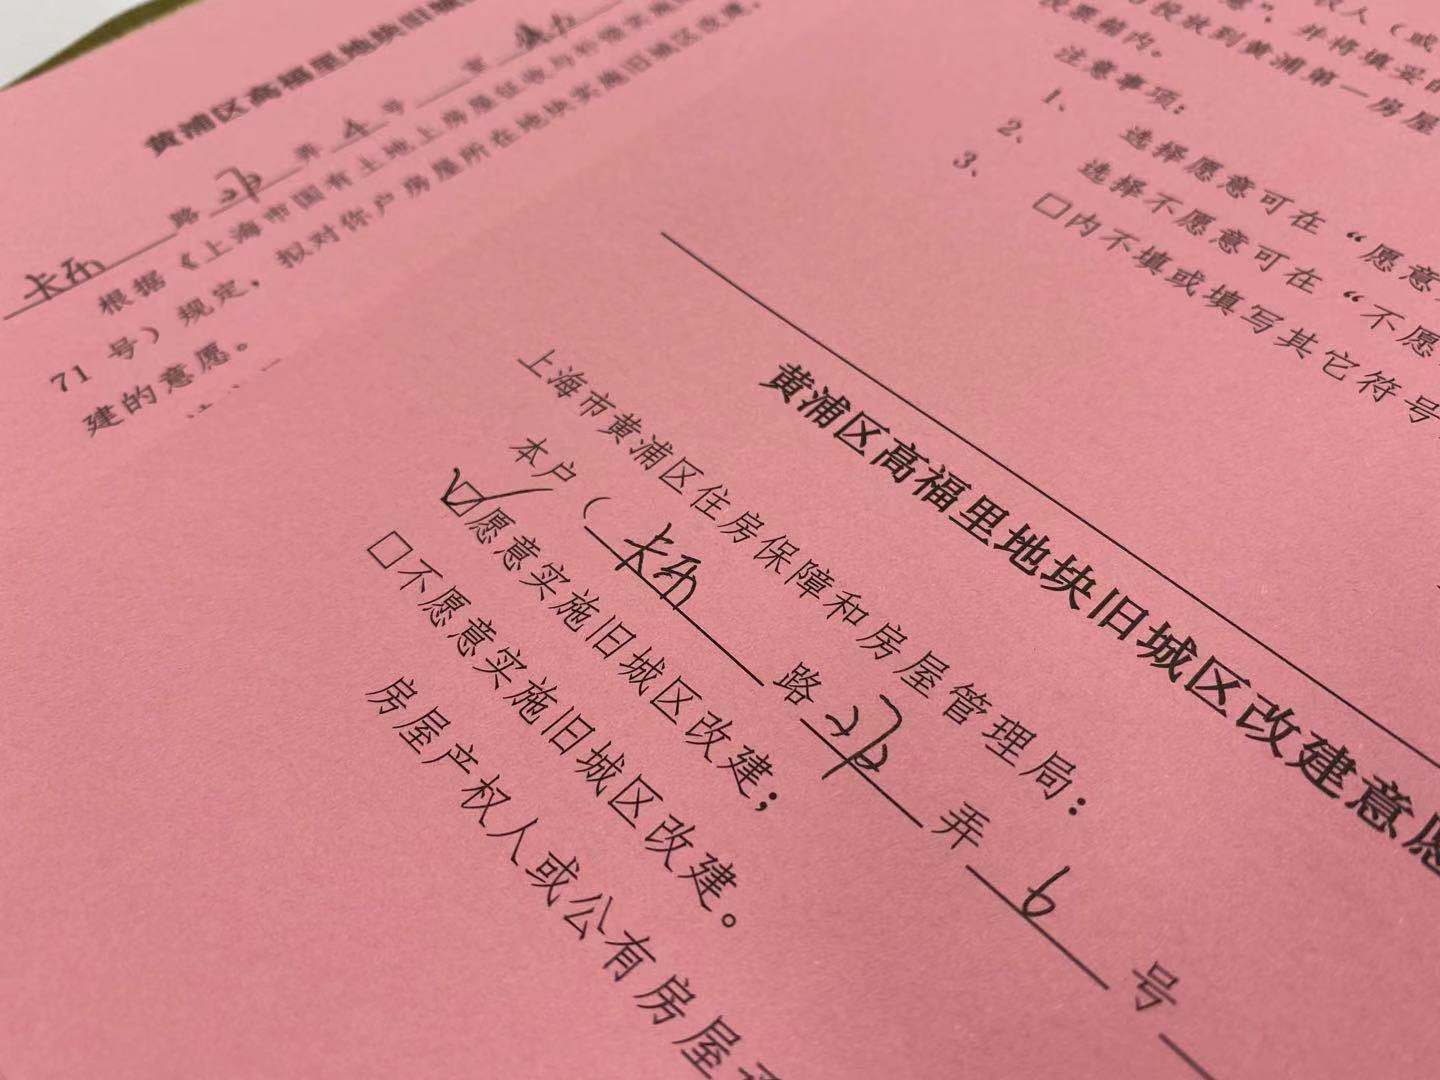 黄浦区高福里地块旧城
路 弄 号 室
根据《上海市国有土地上房屋征收与补偿实施
71 号）规定，拟对你户房屋所在地块实施旧城区改建，
建的意愿。
投票箱内。
注意事项：
1、 选择愿意可在“愿意
2、 选择不愿意可在“不愿
3、 □内不填或填写其它符号
黄浦区高福里地块旧城区改建意愿
上海市黄浦区住房保障和房屋管理局：
本户（ 路 弄 6 号
☑愿意实施旧城区改建；
□不愿意实施旧城区改建。
房屋产权人或公有房屋